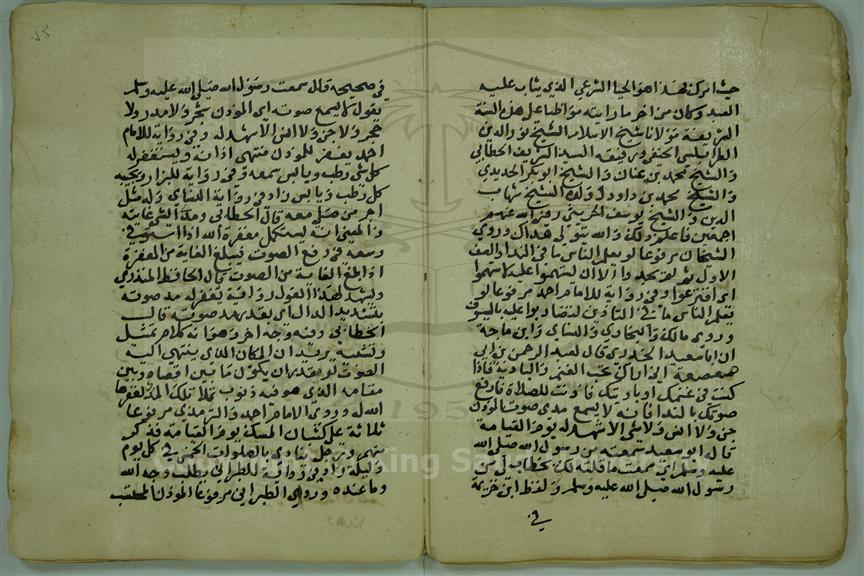 حيث امر كنحذا هو الحيا الشرعي الذي يثاب عليه
العبد وكان من اخر ما رايته مواظبا على هذه السنة
الشريفة مولانا شيخ الاسلام الشيخ نور الدين
الطرابلسي الحنفي ورفيقه السيد الشريف الخطابي
والشيخ محمد بن عنان والشيخ ابو بكر الحديدي
والشيخ محمد بن داود وولده الشيخ شهاب
الدين والشيخ يوسف الحريثي رضي الله عنهم
اجمعين فاعلم ذلك والله يتولى هداك وروى
الشيخان مرفوعا لو يعلم الناس ما في الندا والصف
الاول ثم لم يجدوا الا ان يستهموا عليه لاستهموا
اي اقترعوا وفي رواية للامام احمد مرفوعا لو
يعلم الناس ما في التاذين لتضاربوا عليه بالسيوف
وروى مالك والبخاري والنساي وابن ماجة
ان ابا سعيد الخدري قال لعبد الرحمن بن ابي
صعصعة اني اراك تحب الغنم والبادية فاذا
كنت في غنمك او باديتك فاذنت للصلاة فارفع
صوتك بالندا فانه لا يسمع مدى صوت الموذن
جن ولا انس ولا شي الا شهد له يوم القيامة
قال ابو سعيد سمعته من رسول الله صلى الله
عليه وسلم اي سمعت ما قلته لك بخطاب لي من
رسول الله صلى الله عليه وسلم ولفظ ابن خزيمة
في
٧٥
في صحيحه قال سمعت رسول الله صلى الله عليه وسلم
يقول لا يسمع صوته اي الموذن شجر ولا مدر ولا
حجر ولا جن ولا انس الا شهد له وفي رواية للامام
احمد يغفر للموذن منتهى اذانه ويستغفر له
كل شي رطب ويابس سمعه وفي رواية للبزار ويجيبه
كل رطب ويابس زاد في رواية النساي وله مثل
اجر من صلى معه قال الخطابي ومدا الشي غايته
والمعنى انه يستكمل مغفرة الله اذا استوفى
وسعه في رفع الصوت فيبلغ الغاية من المغفرة
اذا بلغ الغاية من الصوت قال الحافظ المنذري
ويشهد لهذا القول رواية يغفر له مد صوته
بتشديد الدال اي بقدر مد صوته قال
الخطابي وفيه وجه اخر وهو انه كلام تمثيل
وتشبيه يريد ان المكان الذي ينتهي اليه
الصوت لو قدر ان يكون ما بين اقصاه وبين
مقامه الذي هو فيه ذنوب تملا تلك المدة لغفرها
الله له وروى الامام احمد والترمذي مرفوعا
ثلاثة على كثبان المسك يوم القيامة فذكر
منهم ورجل ينادي بالصلوات الخمس في كل يوم
وليلة زاد في رواية للطبراني يطلب وجه الله
وما عنده وروى الطبراني مرفوعا الموذن المحتسب